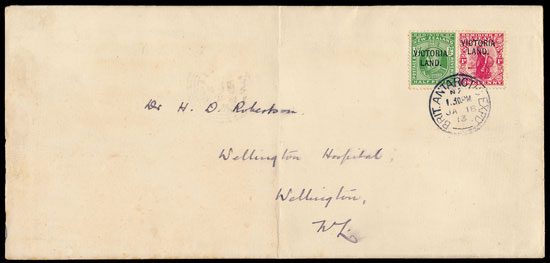 VICTORIA LAND.
VICTORIA LAND.
BRIT. ANTARCTIC EXPD.
N.Z.
1.30PM
JA 18
13
Dr H. D. Robertson.
Wellington Hospital.
Wellington,
NZ.